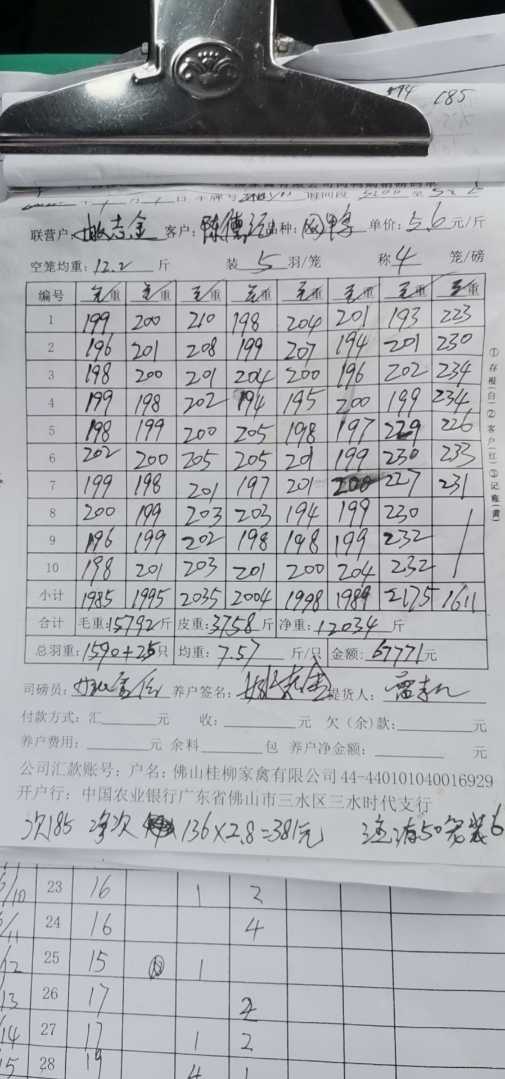 185
联营户: 客户: 品种: 单价: 5.6 元/斤
空笼均重: 12.2 斤 装 5 羽/笼 称 4 笼/磅
编号 毛重 毛重 毛重 毛重 毛重 毛重 毛重 毛重
1 199 200 210 198 204 201 193 223
2 196 201 208 199 207 194 201 230
3 198 200 201 204 200 196 202 234
4 199 198 202 194 195 200 199 234
5 198 199 200 205 198 197 229 226
6 202 200 205 205 201 199 230 233
7 199 198 201 197 201 200 227 231
8 200 199 203 203 194 199 230
9 196 199 202 198 198 199 232
10 198 201 203 201 200 204 232
小计 1985 1995 2035 2004 1998 1989 2175 1611
合计 毛重: 15792 斤 皮重: 3758 斤 净重: 12034 斤
总羽重: 1590+25 只 均重: 7.57 斤/只 金额: 67771 元
①存根(白)②客户(红)③记账(黄)
司磅员: 养户签名: 提货人:
付款方式: 汇 元 收: 元 欠(余)款: 元
养户费用: 元 余料 包 养户净金额: 元
公司汇款账号: 户名: 佛山桂柳家禽有限公司 44-440101040016929
开户行: 中国农业银行广东省佛山市三水区三水时代支行
次185 净次 136×2.8=381元 50笼装6
23 16 1 2
24 16 4
25 15 1
26 17 2
27 17 1 2
28 19 4 1